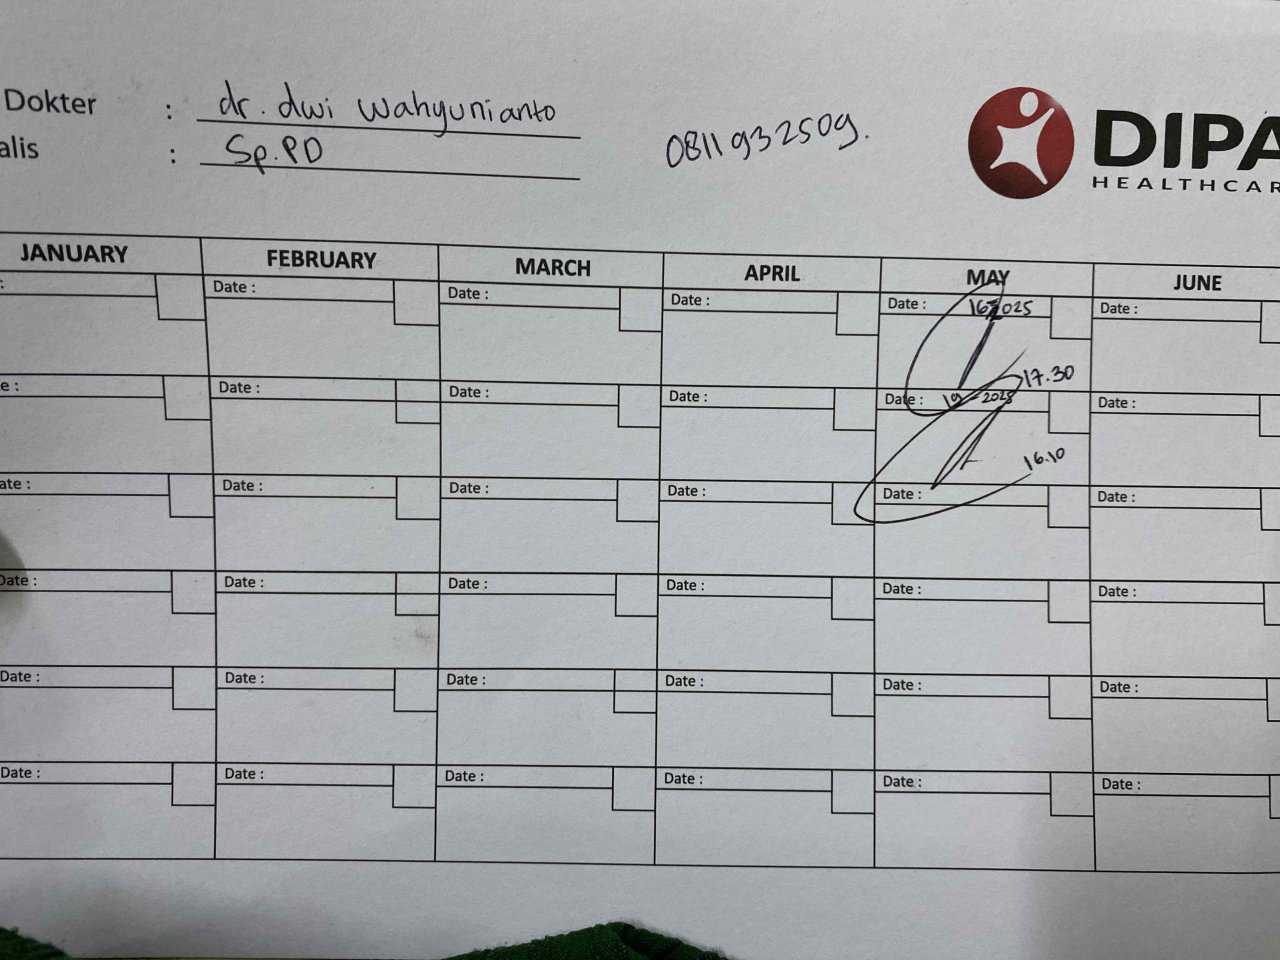 Dokter : dr. dwi Wahyunianto
alis : Sp.PD
0811932509.
DIPA
HEALTHCAR
JANUARY FEBRUARY MARCH APRIL MAY JUNE
: Date : Date : Date : Date : 16 2025 Date :
17.30
e : Date : Date : Date : Date : 19 - 2025 Date :
16.10
ate : Date : Date : Date : Date : Date :
Date : Date : Date : Date : Date : Date :
Date : Date : Date : Date : Date : Date :
Date : Date : Date : Date : Date : Date :